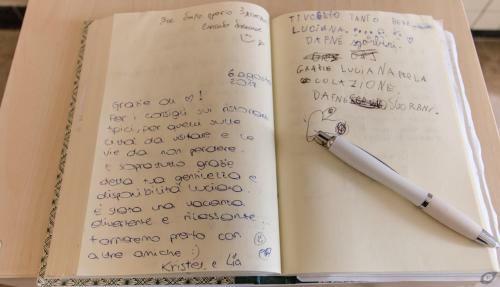 6 agosto
2017
Grazie di ♡!
Per i consigli sui ristoranti
tipici, per quelli sulle
città da visitare e le
vie da non perdere.
E soprattutto grazie
della tua gentilezza e
disponibilità Luciana.
È stata una vacanza
divertente e rilassante...
torneremo presto con
altre amiche :)
Kristel e Lia
TI VOGLIO TANTO BENE
LUCIANA. ♡
DAFNE
GRAZIE LUCIANA PER LA
COLAZIONE.
DAFNE